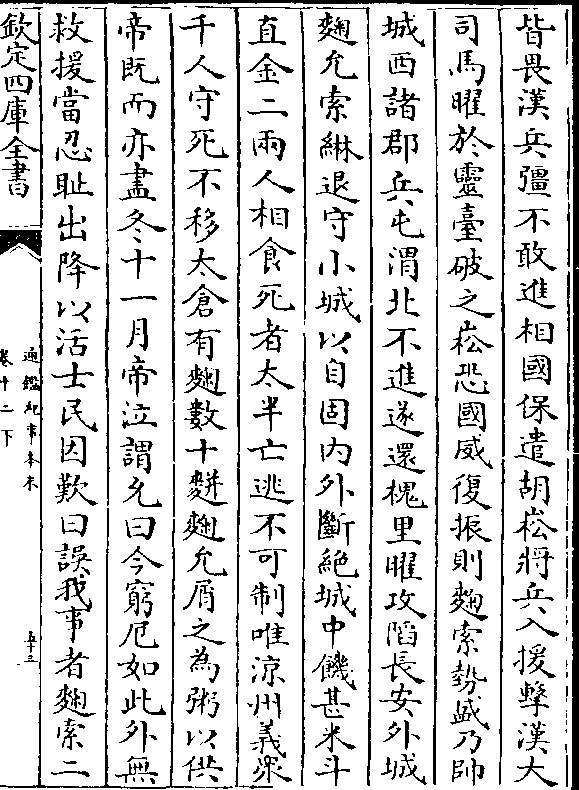 皆畏漢兵彊不敢進相國保遣胡崧將兵入援擊漢大
司馬曜於靈臺破之崧恐國威復振則麴索勢盛乃帥
城西諸郡兵屯渭北不進遂還槐里曜攻陷長安外城
麴允索綝退守小城以自固内外斷絶城中饑甚米斗
直金二兩人相食死者太半亡逃不可制唯涼州義衆
千人守死不移太倉有麴數十䴵麴允屑之為粥以供
帝既而亦盡冬十一月帝泣謂允曰今窮厄如此外無
救援當忍耻出降以活士民因歎曰誤我事者麴索二
欽定四庫全書
通鑑紀事本末
卷十二下
五十三